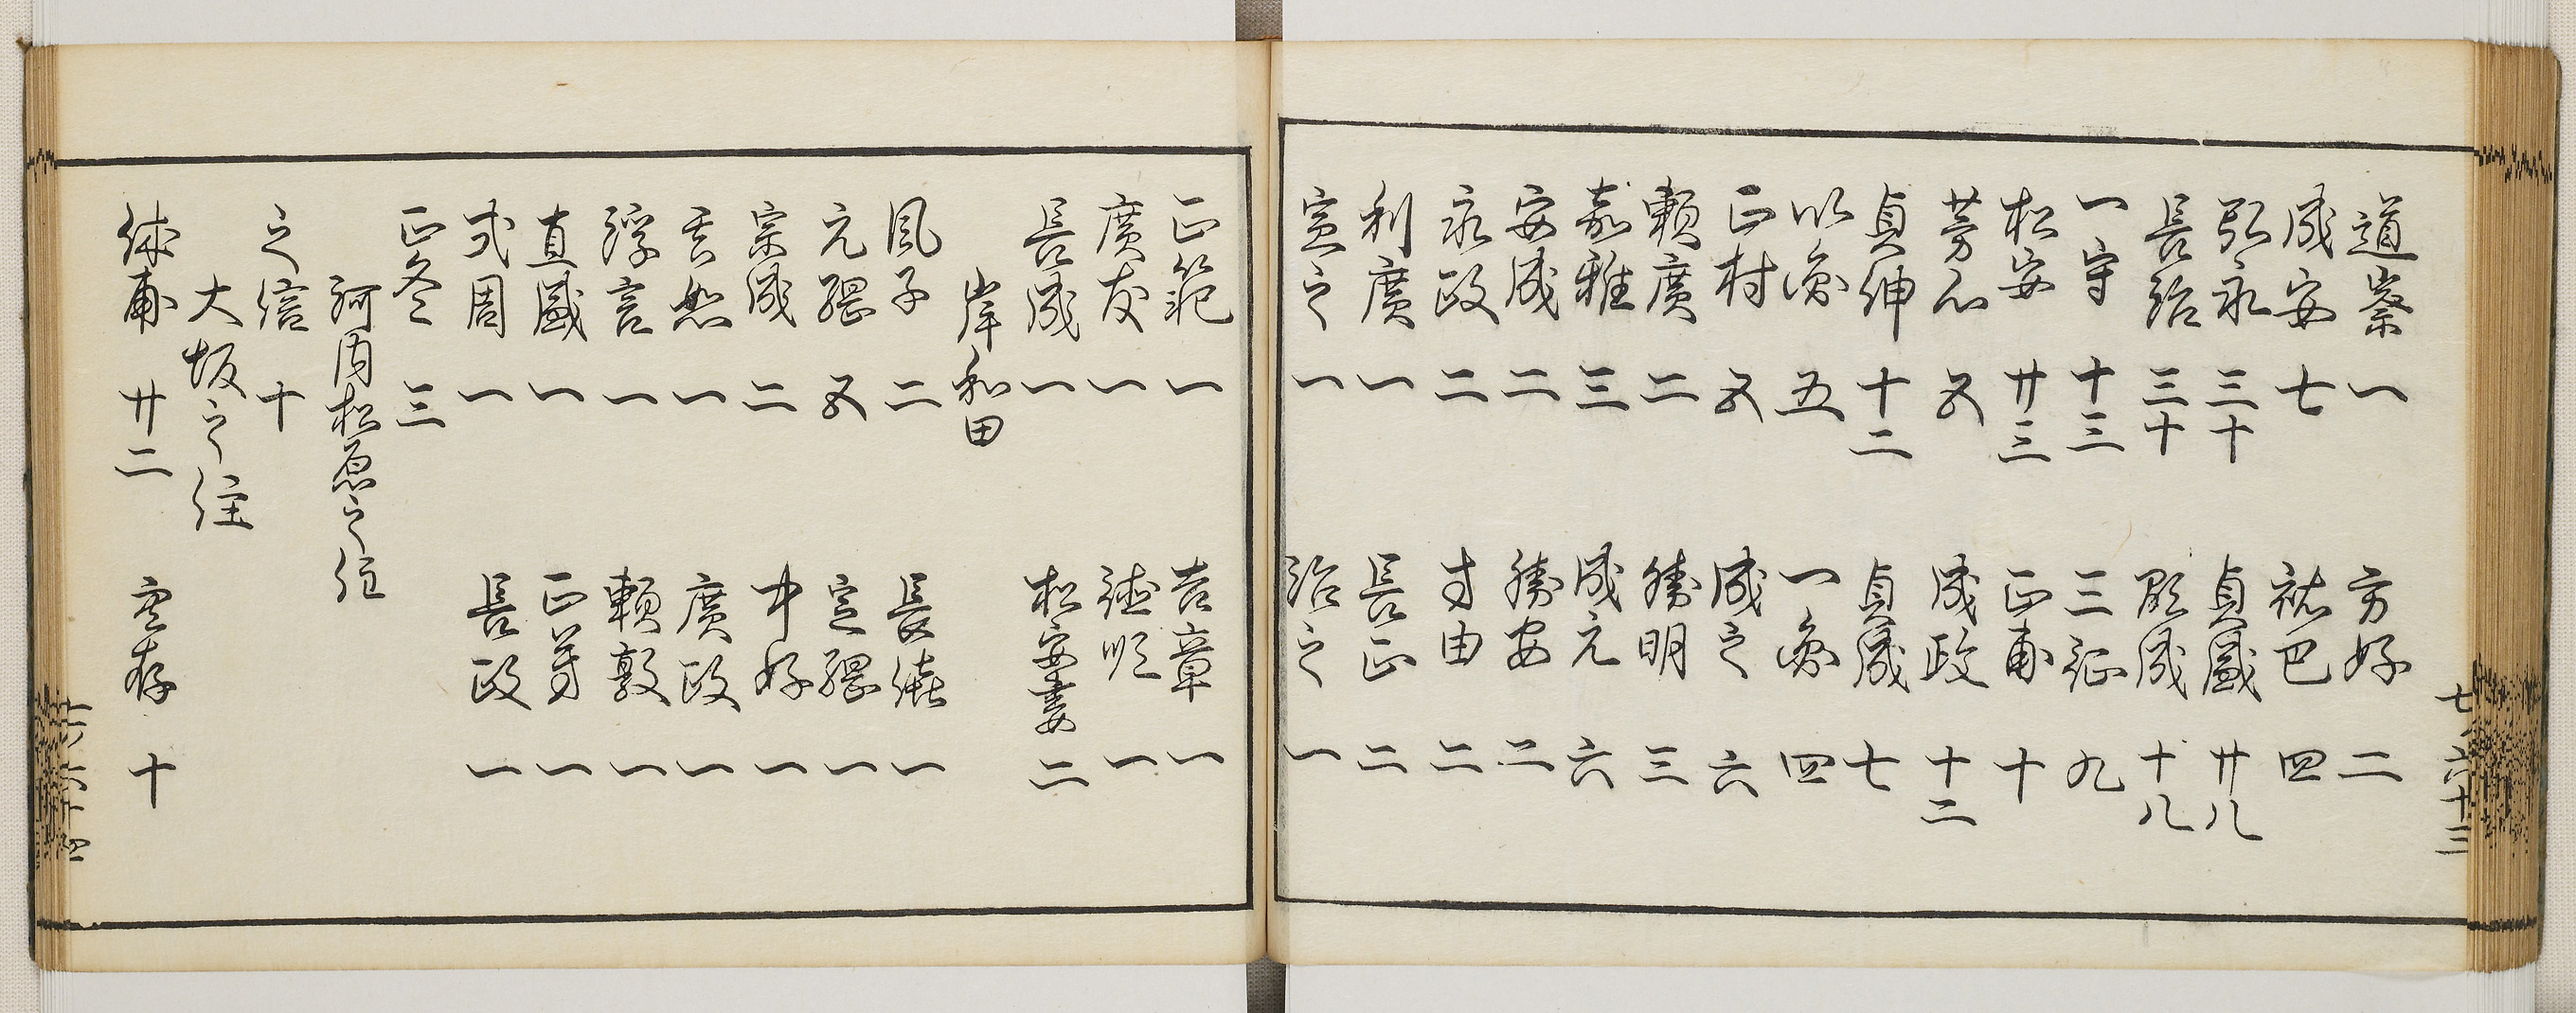 道察 一 方好 二
成安 七 祐巴 四
弘永 三十 貞盛 廿八
長治 三十 顕成 十八
一守 十三 三征 九
松安 廿三 正甫 十
芳心 五 成政 十二
貞伸 十二 貞成 七
以象 五 一象 四
正村 五 成之 六
頼廣 二 勝明 三
嘉雅 三 成元 六
安成 二 勝安 二
永政 二 寸由 二
利廣 一 長正 二
宣之 一 治之 一
七 六十三
正範 一 吉章 一
廣友 一 徳順 一
長成 一 松安妻 二
岸和田
風子 二 長徳 一
元繼 五 定繼 一
宗成 二 中好 一
一 廣政 一
浮言 一 頼敦 一
直盛 一 正義 一
式周 一 長政 一
正冬 三
河内松原之住
之信 十
大坂之住
休甫 廿二 空存 十
六十四